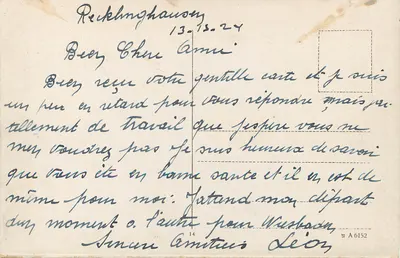 Recklinghausen
13-12-24
Bien Chere Amie
Bien reçu votre gentille carte et je suis
un peu en retard pour vous répondre, mais j'ai
tellement de travail que j'espère vous ne
m'en voudrez pas Je suis heureux de savoir
que vous ête en bonne santé et il en est de
même pour moi. J'attend mon départ
d'un moment a l'autre pour Wiesbaden
Sincere Amitiés Léon
A 6152